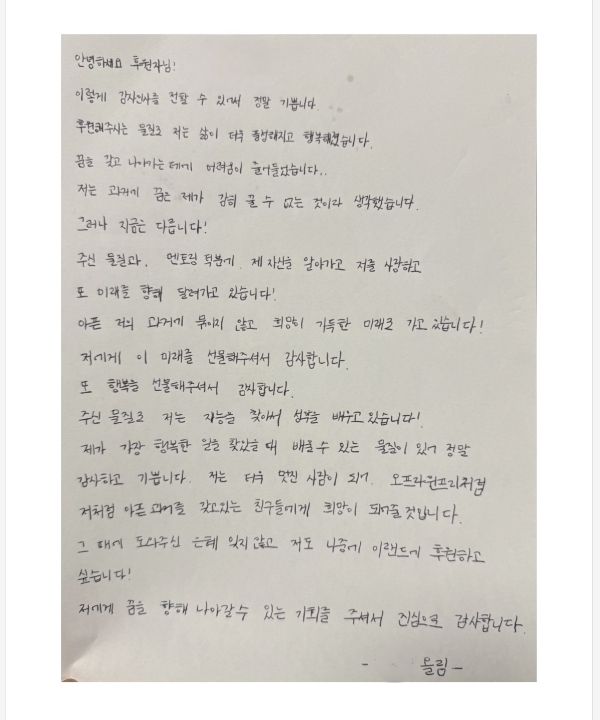 안녕하세요 후원자님!
이렇게 감사인사를 전할 수 있어서 정말 기쁩니다.
후원해주시는 물질로 저는 삶이 더욱 풍성해지고 행복해졌습니다.
꿈을 갖고 나아가는데에 어려움이 줄어들었습니다..
저는 과거에 꿈은 제가 감히 꿀 수 없는 것이라 생각했습니다.
그러나 지금은 다릅니다!
주신 물질과, 멘토링 덕분에 제 자신을 알아가고 저를 사랑하고
또 미래를 향해 달려가고 있습니다!
아픈 저의 과거에 묶이지 않고 희망이 가득한 미래로 가고있습니다!
저에게 이 미래를 선물해주셔서 감사합니다.
또 행복을 선물해주셔서 감사합니다.
주신 물질로 저는 재능을 찾아서 성부을 배우고있습니다!
제가 가장 행복한 일을 찾았을때 배울수 있는 물질이 있어 정말
감사하고 기쁩니다. 저는 더욱 멋진 사람이 되어, 오프라윈프리처럼
저처럼 아픈과거를 갖고있는 친구들에게 희망이 되어줄것입니다.
그 때에 도와주신 은혜 잊지않고 저도 나중에 이랜드에 후원하고
싶습니다!
저에게 꿈을 향해 나아갈수 있는 기회를 주셔서 진심으로 감사합니다.
- 올림 -